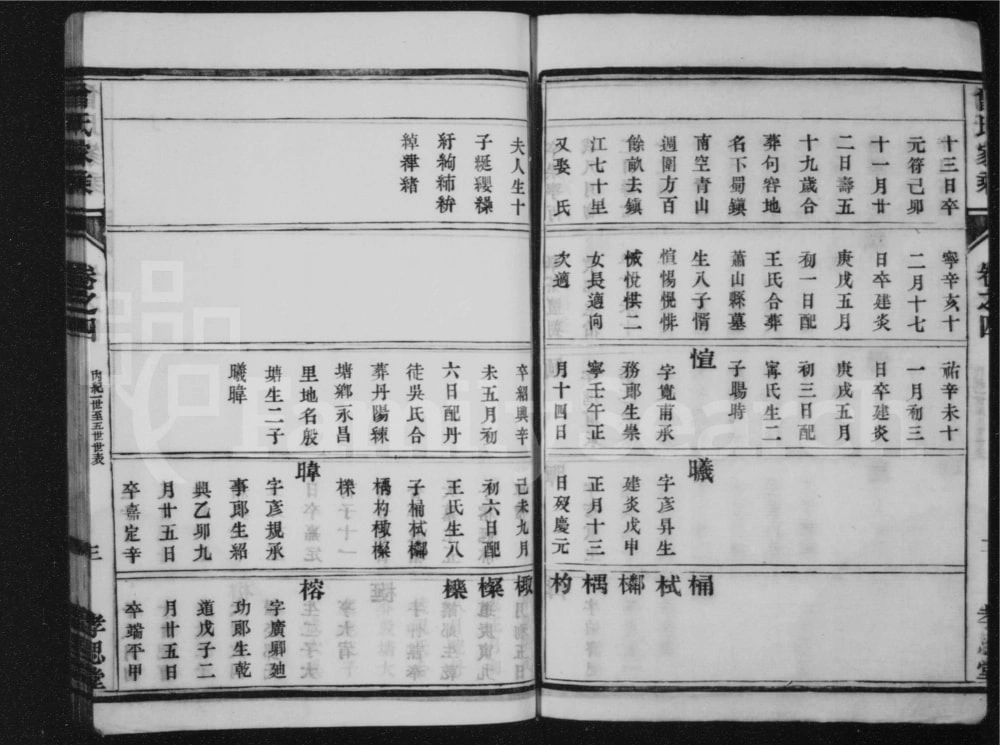 十三日卒
元符己卯
十一月廿
二日壽五
十九歲合
葬句容地
名下蜀鎮
南空青山
週圍方百
餘畝去鎮
江七十里
又娶 氏
寧辛亥十
二月十七
日卒建炎
庚戌五月
初一日配
王氏合葬
蕭山縣墓
生八子惰
愃惕恱悱
惐悅惎二
女長適向
次適
祐辛未十
一月初三
日卒建炎
庚戌五月
初三日配
寗氏生二
子暘時
愃
字寬甫承
務郎生崇
寧壬午正
月十四日
曦
字彥昇生
建炎戊申
正月十三
日歿慶元
桶
栻
楖
楀
杓
夫人生十
子綎纓繰
紆絢紼絣
綽繟緒
卒紹興辛
未五月初
六日配丹
徒吳氏合
葬丹陽練
塘鄉永昌
里地名殷
塘生二子
曦暐
己未九月
初六日配
王氏生八
子桶栻楖
楀杓橄榘
櫟
暐
字彥規承
事郎生紹
興乙卯九
月廿五日
卒嘉定辛
榕
字廣卿廸
功郎生乾
道戊子二
月廿五日
卒端平甲
曾氏家乘
卷之四
內紀一世至五世世表
三
孝思堂
曾氏家乘
卷之四
孝思堂